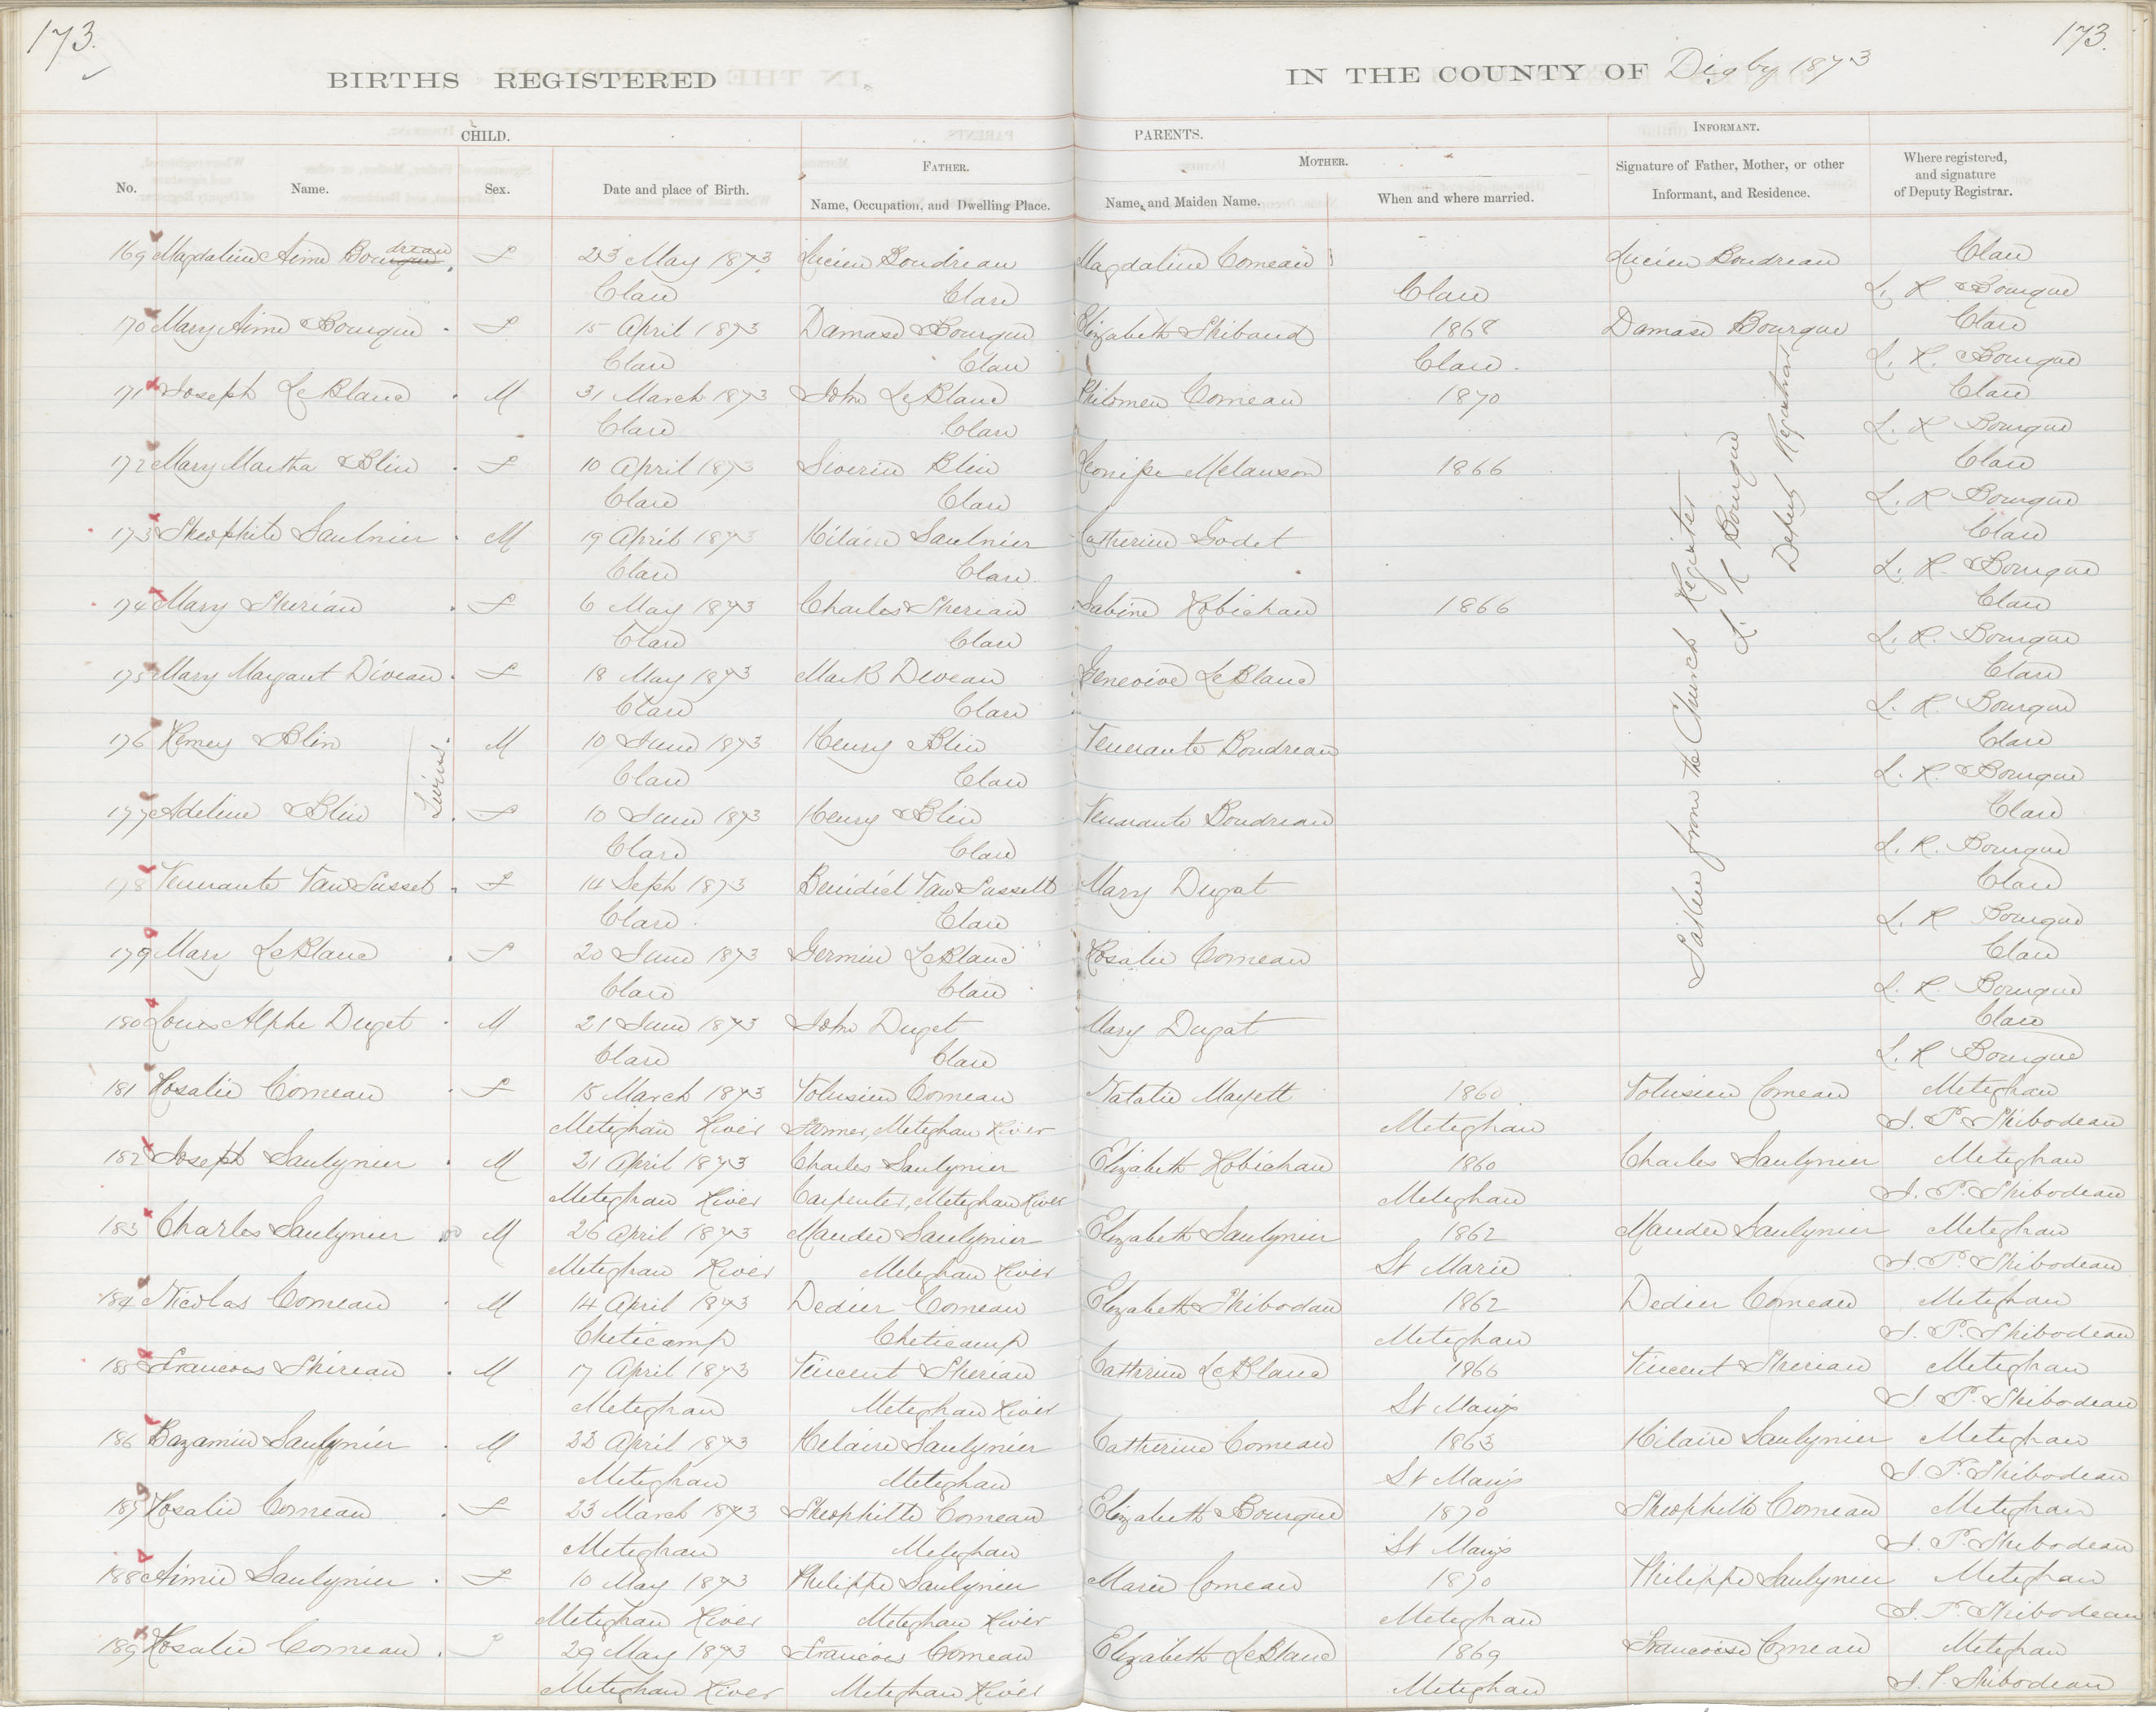 173.
173.
BIRTHS REGISTERED
IN THE COUNTY OF Digby 1873
CHILD.
PARENTS.
INFORMANT.
No.
Name.
Sex.
Date and place of Birth.
FATHER.
Name, Occupation, and Dwelling Place.
MOTHER.
Name, and Maiden Name.
When and where married.
Signature of Father, Mother, or other
Informant, and Residence.
Where registered,
and signature
of Deputy Registrar.
169 Magdaline Aime Boudreau f 23 May 1873 Lucien Boudreau Magdaline Comeau Lucien Boudreau Clare
Clare Clare Clare L. R. Bourque
170 Mary Aime Bourque f 15 April 1873 Damase Bourque Elizabeth Thibaud 1868 Damase Bourque Clare
Clare Clare Clare L. R. Bourque
171 Joseph LeBlanc M 31 March 1873 John LeBlanc Philomen Comeau 1870 Clare
Clare Clare L. R. Bourque
172 Mary Martha Blin f 10 April 1873 Siverin Blin Melanson 1866 Clare
Clare Clare L. R. Bourque
173 Theophile Saulnier M 19 April 1873 Hilaire Saulnier Catherine Godet Clare
Clare Clare L. R. Bourque
174 Mary Therian f 6 May 1873 Charles Therian Sabine Robichau 1866 Clare
Clare Clare L. R. Bourque
175 Mary Margaret Diveau f 18 May 1873 Mark Diveau Genevive LeBlanc Clare
Clare Clare L. R. Bourque
176 Remey Blin M 10 June 1873 Henry Blin Venerante Boudreau Clare
Clare Clare L. R. Bourque
177 Adeline Blin f 10 June 1873 Henry Blin Venerante Boudreau Clare
Clare Clare L. R. Bourque
Twins.
178 Venerante f 14 Sept 1873 Benidict Mary Dugat Clare
Clare Clare L. R. Bourque
179 Mary LeBlanc f 20 June 1873 Germin LeBlanc Rosalie Comeau Clare
Clare Clare L. R. Bourque
180 Louis Alphe Duget M 21 June 1873 John Duget Mary Dugat Clare
Clare Clare L. R. Bourque
Taken from the Church Register
L. R Bourque
Deputy Registrar
181 Rosalie Comeau f 15 March 1873 Volusien Comeau Natalie Mayett 1860 Volusien Comeau Meteghan
Meteghan River Farmer, Meteghan River Meteghan J. P. Thibodeau
182 Joseph Saulynier M 21 April 1873 Charles Saulynier Elizabeth Robichau 1860 Charles Saulynier Meteghan
Meteghan River Carpenter, Meteghan River Meteghan J. P. Thibodeau
183 Charles Saulynier M 26 April 1873 Mander Saulynier Elizabeth Saulynier 1862 Mander Saulynier Meteghan
Meteghan River Meteghan River St Marie J. P. Thibodeau
184 Nicolas Comeau M 14 April 1873 Dedier Comeau Elizabeth Thibodau 1862 Dedier Comeau Meteghan
Cheticamp Cheticamp Meteghan J. P. Thibodeau
185 Francois Thireau M 17 April 1873 Vincent Therian Catherine LeBlanc 1866 Vincent Therian Meteghan
Meteghan Meteghan River St Marys J. P. Thibodeau
186 Bazamin Saulynier M 22 April 1873 Helaire Saulynier Catherine Comeau 1863 Hilaire Saulynier Meteghan
Meteghan Meteghan St Marys J. P. Thibodeau
187 Rosalie Comeau f 23 March 1873 Theophille Comeau Elizabeth Bourque 1870 Theophille Comeau Meteghan
Meteghan Meteghan St Marys J. P. Thibodeau
188 Aimie Saulynier f 10 May 1873 Philippe Saulynier Marie Comeau 1870 Philippe Saulynier Meteghan
Meteghan River Meteghan River Meteghan J. P. Thibodeau
189 Rosalie Comeau f 29 May 1873 Francois Comeau Elizabeth LeBlanc 1869 Francoise Comeau Meteghan
Meteghan River Meteghan River Meteghan J. P. Thibodeau